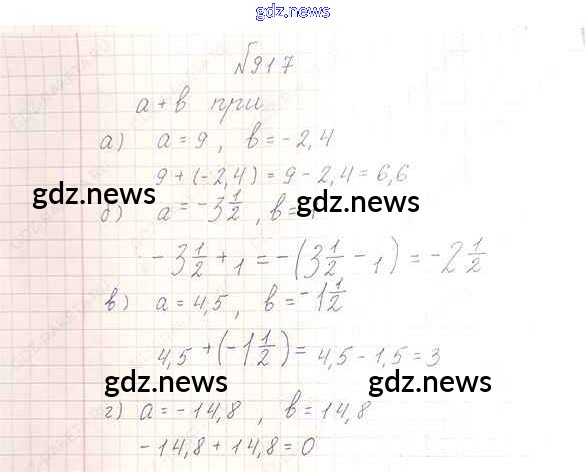 gdz.news
№917
a + b при
а) a = 9, b = -2,4
9 + (-2,4) = 9 - 2,4 = 6,6
gdz.news gdz.news
б) a = -3 1/2, b = 1
-3 1/2 + 1 = -(3 1/2 - 1) = -2 1/2
в) a = 4,5, b = -1 1/2
4,5 + (-1 1/2) = 4,5 - 1,5 = 3
gdz.news gdz.news
г) a = -14,8, b = 14,8
-14,8 + 14,8 = 0